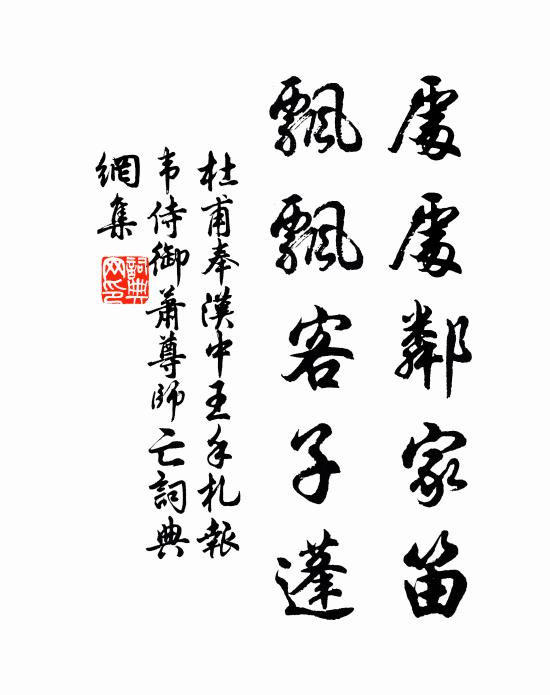 處處鄰家笛
飄飄客子蓬
杜甫奉漢中王手札報
韦侍御萧尊師亡詞典
網集
詞典
网印